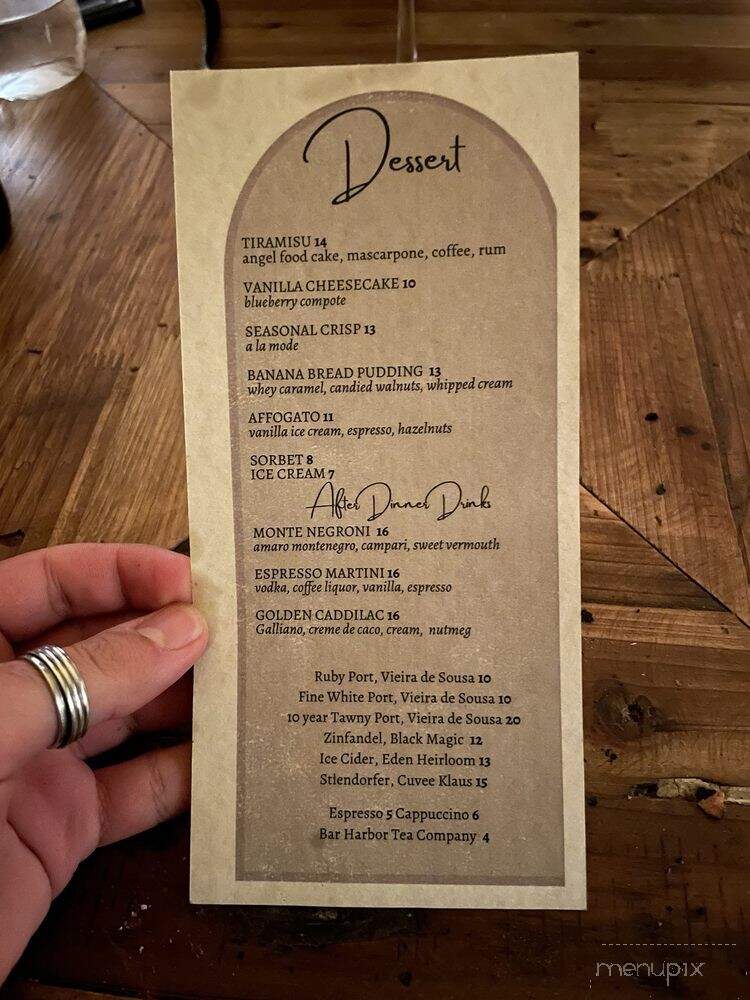 Dessert
TIRAMISU 14
angel food cake, mascarpone, coffee, rum
VANILLA CHEESECAKE 10
blueberry compote
SEASONAL CRISP 13
a la mode
BANANA BREAD PUDDING 13
whey caramel, candied walnuts, whipped cream
AFFOGATO 11
vanilla ice cream, espresso, hazelnuts
SORBET 8
ICE CREAM 7
After Dinner Drinks
MONTE NEGRONI 16
amaro montenegro, campari, sweet vermouth
ESPRESSO MARTINI 16
vodka, coffee liquor, vanilla, espresso
GOLDEN CADDILAC 16
Galliano, creme de caco, cream, nutmeg
Ruby Port, Vieira de Sousa 10
Fine White Port, Vieira de Sousa 10
10 year Tawny Port, Vieira de Sousa 20
Zinfandel, Black Magic 12
Ice Cider, Eden Heirloom 13
Stlendorfer, Cuvee Klaus 15
Espresso 5 Cappuccino 6
Bar Harbor Tea Company 4
menupix